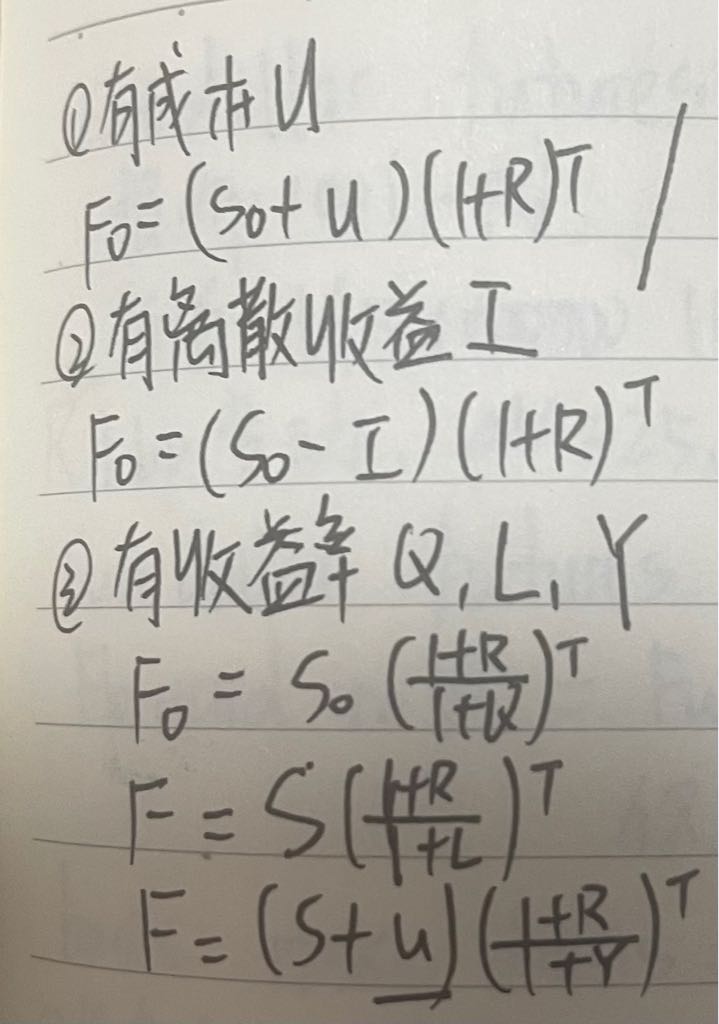 ①有成本U
F₀=(S₀+U)(1+R)ᵀ
②有离散收益I
F₀=(S₀-I)(1+R)ᵀ
③有收益率Q,L,Y
F₀=S₀((1+R)/(1+Q))ᵀ
F=S((1+R)/(1+L))ᵀ
F=(S+u)((1+R)/(1+Y))ᵀ